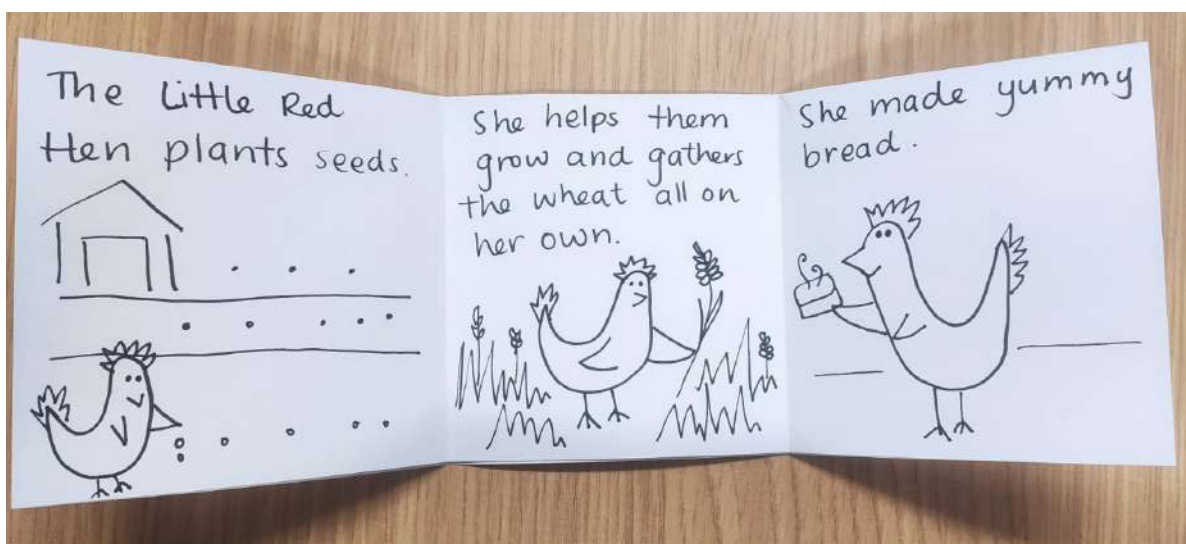 The Little Red
Hen plants seeds.
She helps them
grow and gathers
the wheat all on
her own.
She made yummy
bread.